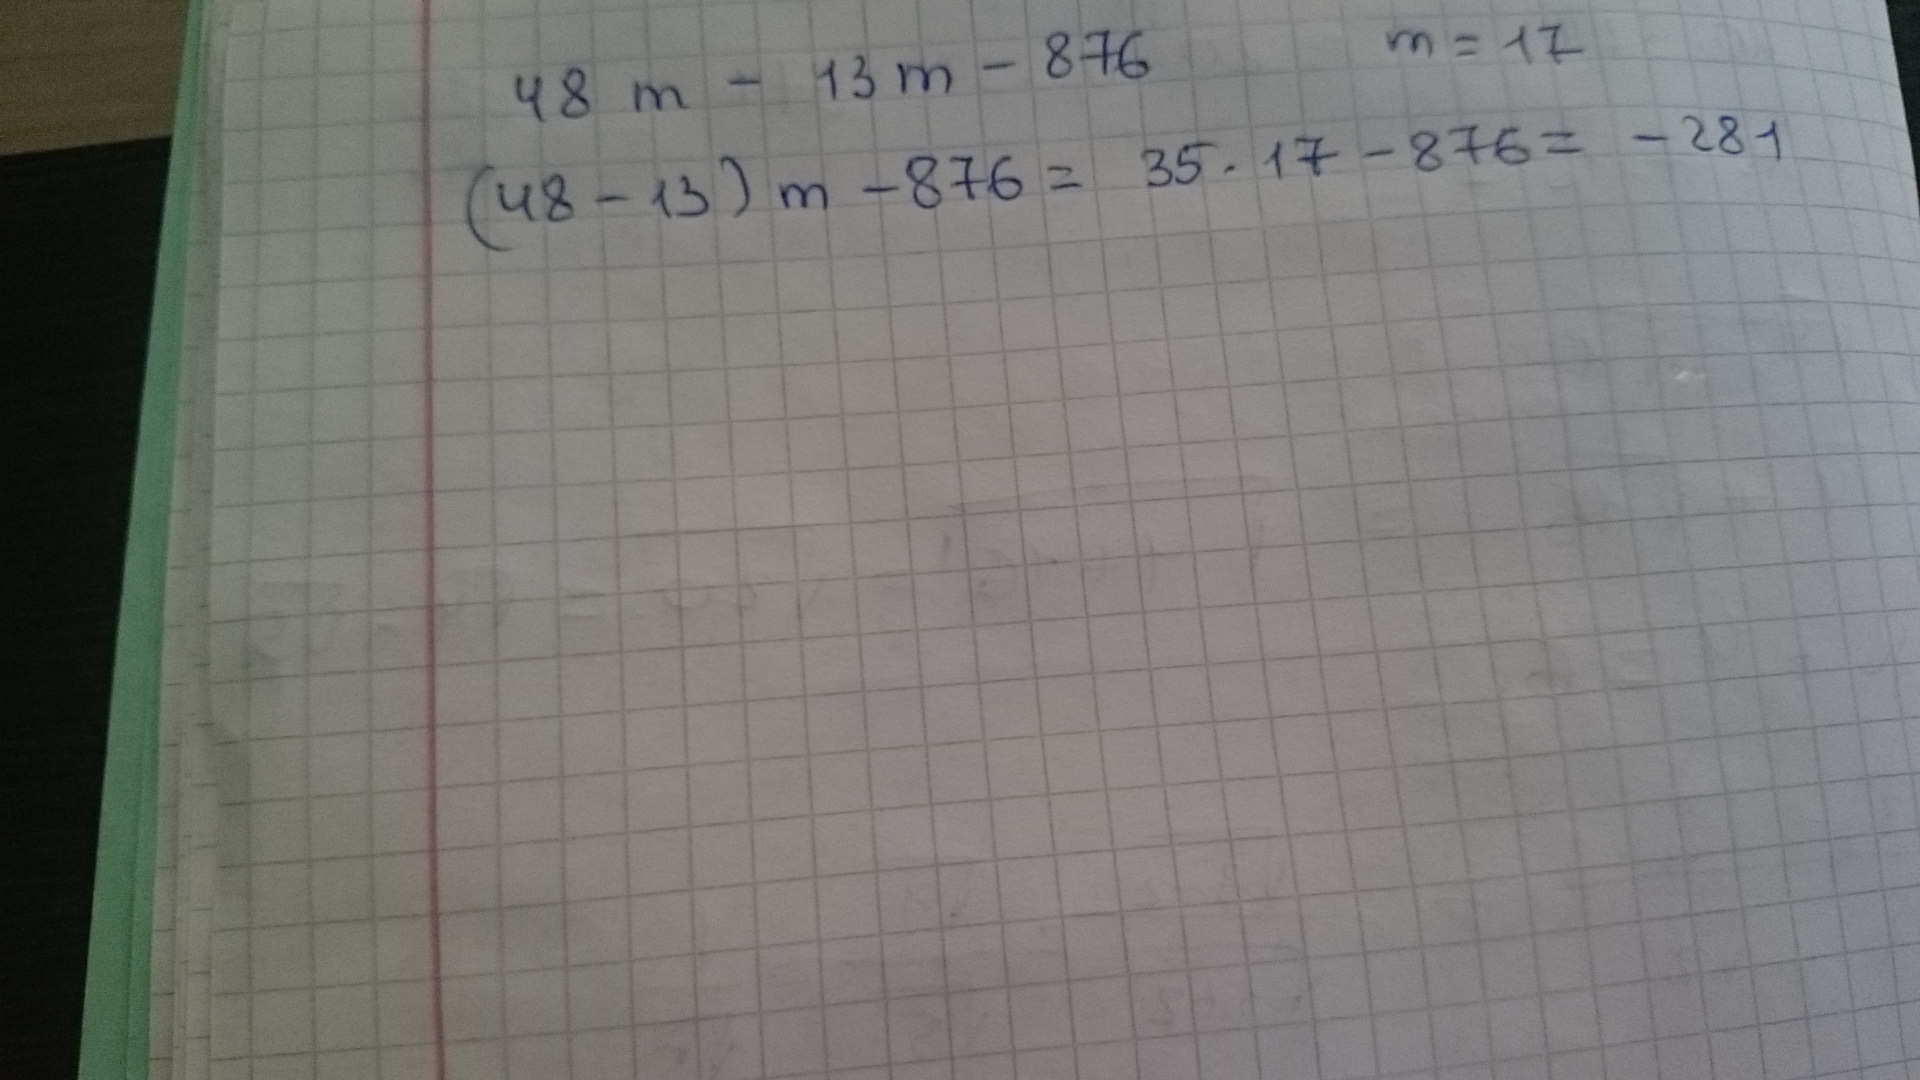 48 m - 13 m - 876 m = 17
(48 - 13) m - 876 = 35 · 17 - 876 = - 281